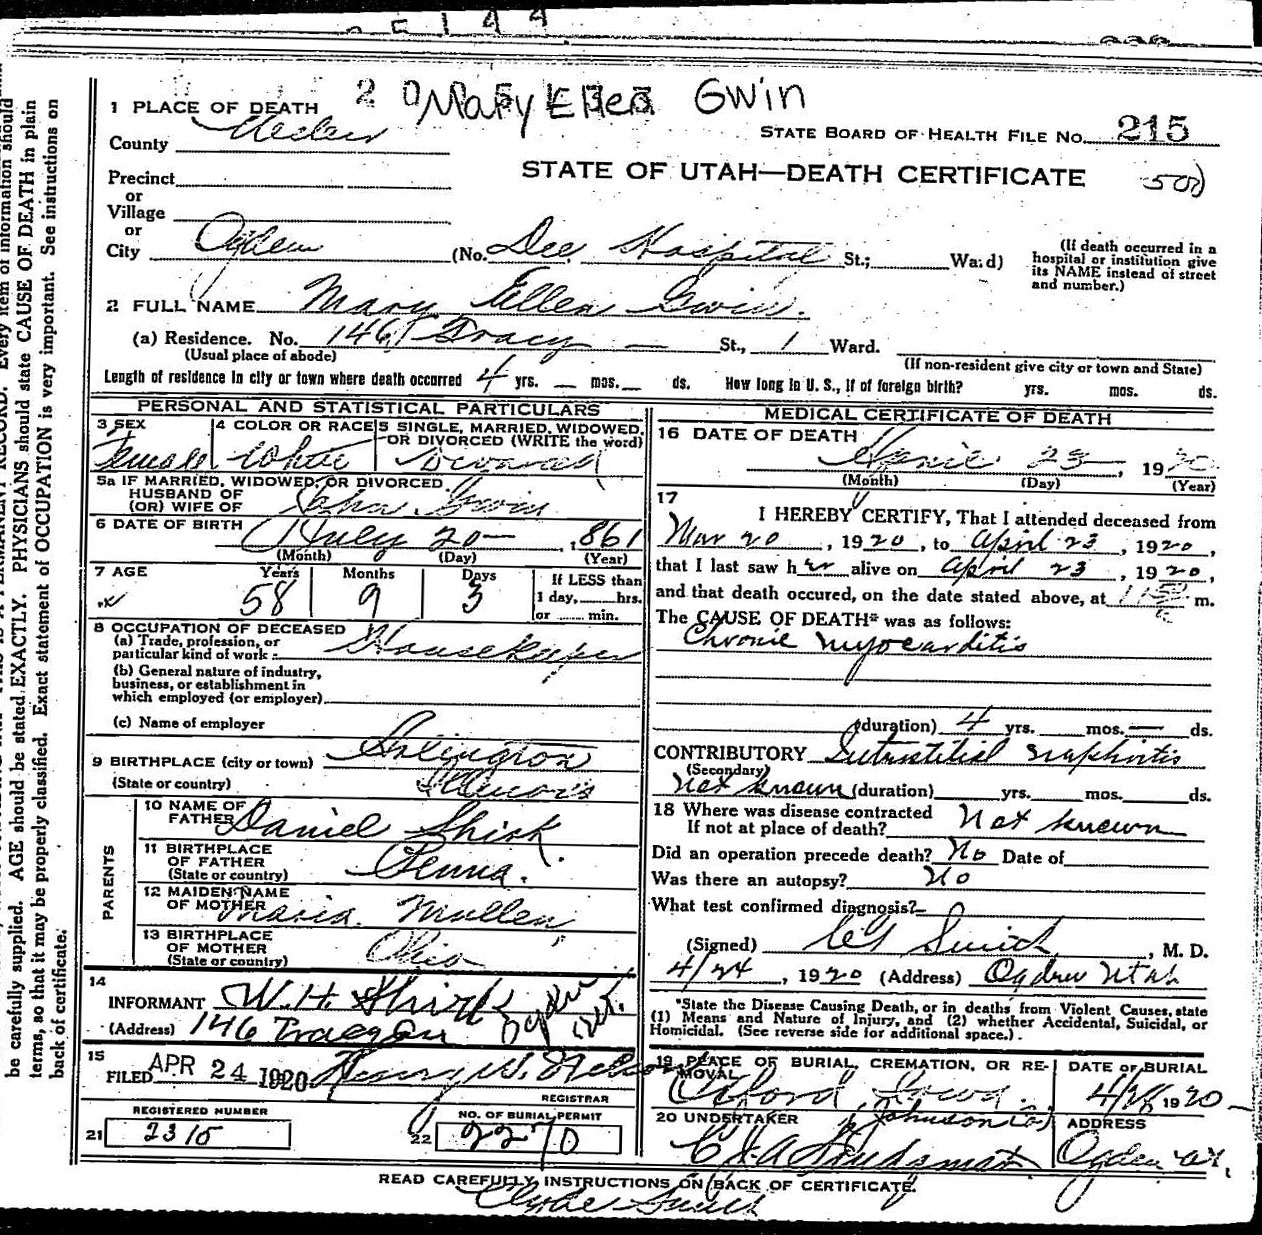 Mary Ellen Gwin
1 PLACE OF DEATH
STATE BOARD OF HEALTH FILE No. 215
County Weber
STATE OF UTAH—DEATH CERTIFICATE
Precinct
or
Village
or
City Ogden (No. Dee Hospital St.; Ward)
(If death occurred in a hospital or institution give its NAME instead of street and number.)
2 FULL NAME Mary Ellen Gwin.
(a) Residence. No. 1461 Tracy — St., 1 Ward.
(Usual place of abode)
(If non-resident give city or town and State)
Length of residence in city or town where death occurred 4 yrs. — mos. — ds. How long in U. S., if of foreign birth? yrs. mos. ds.
PERSONAL AND STATISTICAL PARTICULARS
3 SEX Female
4 COLOR OR RACE White
5 SINGLE, MARRIED, WIDOWED, OR DIVORCED (WRITE the word)
5a IF MARRIED, WIDOWED, OR DIVORCED
HUSBAND OF
(OR) WIFE OF John Gwin
6 DATE OF BIRTH July 20 — , 1861
(Month) (Day) (Year)
7 AGE Years 58 Months 9 Days 3
If LESS than 1 day, hrs. or min.
8 OCCUPATION OF DECEASED
(a) Trade, profession, or particular kind of work Housekeeper
(b) General nature of industry, business, or establishment in which employed (or employer)
(c) Name of employer
9 BIRTHPLACE (city or town) Arlington
(State or country) Illinois
PARENTS
10 NAME OF FATHER Daniel Shirk
11 BIRTHPLACE OF FATHER (State or country) Penna.
12 MAIDEN NAME OF MOTHER Maria Mullen
13 BIRTHPLACE OF MOTHER (State or country) Ohio
14
INFORMANT W. H. Shirk
(Address) 146 Ogden Ut.
15
FILED APR 24 1920 Henry W. Nelson
REGISTRAR
REGISTERED NUMBER
21 2315
NO. OF BURIAL PERMIT
22 2270
MEDICAL CERTIFICATE OF DEATH
16 DATE OF DEATH April 23 , 1920
(Month) (Day) (Year)
17
I HEREBY CERTIFY, That I attended deceased from
Mar 20 , 1920 , to April 23 , 1920 ,
that I last saw her alive on April 23 , 1920 ,
and that death occured, on the date stated above, at m.
The CAUSE OF DEATH* was as follows:
Chronic myocarditis
(duration) 4 yrs. mos. — ds.
CONTRIBUTORY Interstitial nephritis
(Secondary)
Not known (duration) yrs. mos. ds.
18 Where was disease contracted
If not at place of death? Not known
Did an operation precede death? No Date of
Was there an autopsy? No
What test confirmed diagnosis?
(Signed) Smith , M. D.
4/24 , 1920 (Address) Ogden Utah
*State the Disease Causing Death, or in deaths from Violent Causes, state
(1) Means and Nature of Injury, and (2) whether Accidental, Suicidal, or
Homicidal. (See reverse side for additional space.)
19 PLACE OF BURIAL, CREMATION, OR REMOVAL Oxford Iowa
Johnson Co)
DATE OF BURIAL 1920
20 UNDERTAKER
ADDRESS Ogden Ut.
READ CAREFULLY INSTRUCTIONS ON BACK OF CERTIFICATE.
Clyde Smith
be carefully supplied. AGE should be stated EXACTLY. PHYSICIANS should state CAUSE OF DEATH in plain
terms, so that it may be properly classified. Exact statement of OCCUPATION is very important. See instructions on
back of certificate.